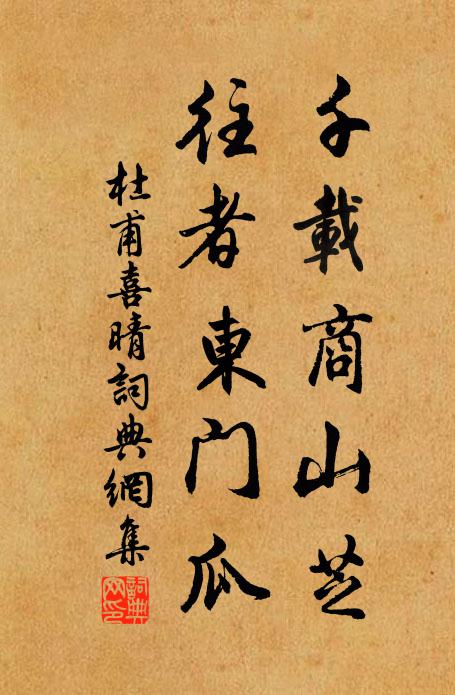 千載商山芝
往者東門瓜
杜甫喜晴詞典網集
詞典網印